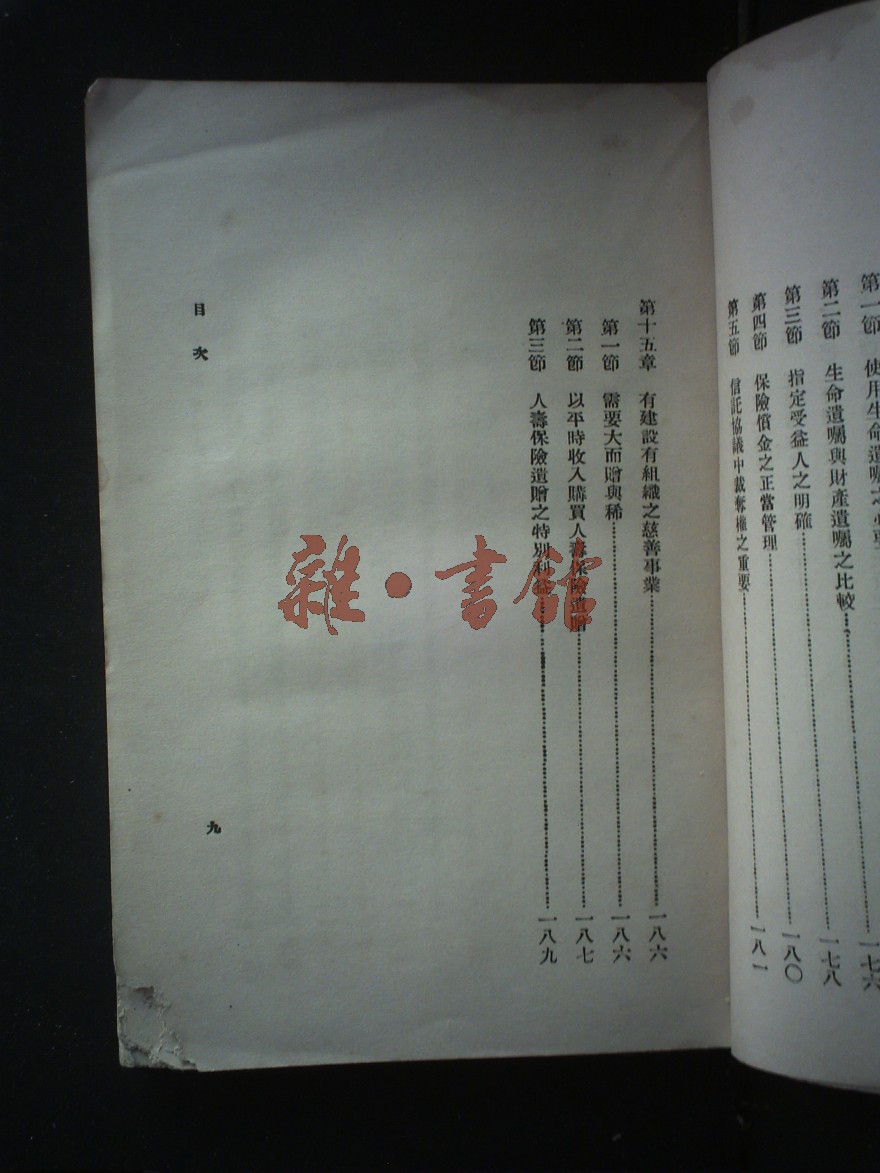 第一節 使用生命遺囑之
第二節 生命遺囑與財產遺囑之比較……一七六
第三節 指定受益人之明確……一七八
第四節 保險償金之正當管理……一八〇
第五節 信託協議中裁奪權之重要……一八一
第十五章 有建設有組織之慈善事業……一八六
第一節 需要大而贈與稀……一八六
第二節 以平時收入購買人壽保險遺贈……一八七
第三節 人壽保險遺贈之特別利益……一八九
目次
九
雜·書館